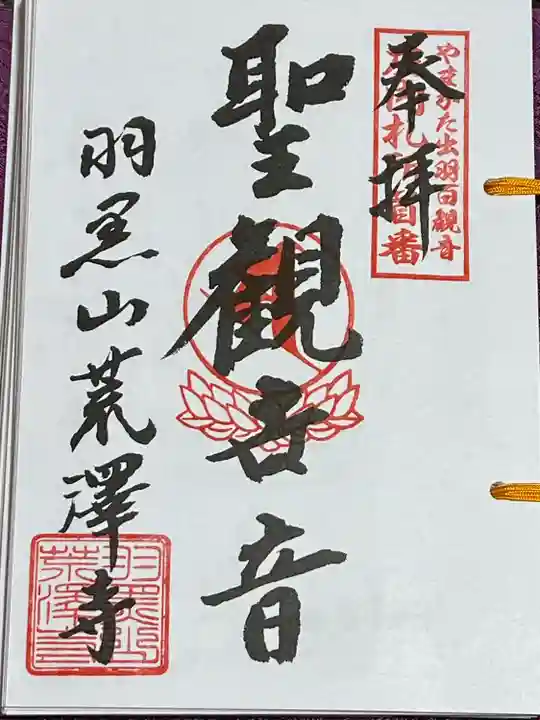 やまがた出羽百観音
奉拝
聖観世音
羽黒山荒澤寺
羽黒山
荒澤寺